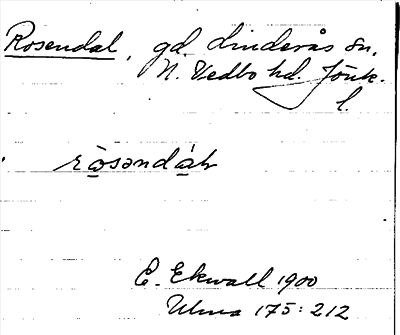 Rosendal, gd. Linderås sn,
N. Vedbo hd. Jönk.
l.
ròsəndáɫ
E. Ekwall 1900
Ulma 175:212